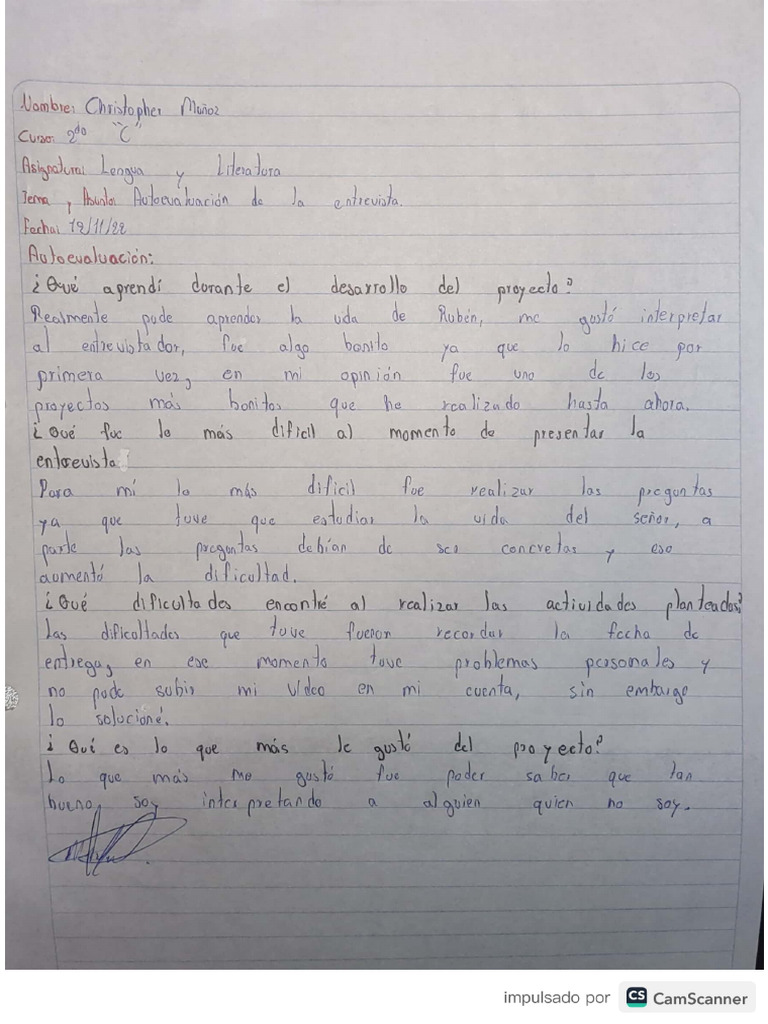 Nombre: Christopher Muñoz
Curso: 2do "C"
Asignatura: Lengua y Literatura
Tema y Asunto: Autoevaluación de la entrevista.
Fecha: 12/11/22
Autoevaluación:
¿Qué aprendí durante el desarrollo del proyecto?
Realmente pude aprender la vida de Rubén, me gustó interpretar
al entrevistador, fue algo bonito ya que lo hice por
primera vez, en mi opinión fue uno de los
proyectos más bonitos que he realizado hasta ahora.
¿Qué fue lo más dificil al momento de presentar la
entrevista
Para mí lo más dificil fue realizar las preguntas
ya que tuve que estudiar la vida del señor, a
parte las preguntas debían de ser concretas y eso
aumentó la dificultad.
¿Qué dificultades encontré al realizar las actividades planteadas?
Las dificultades que tuve fueron recordar la fecha de
entrega, en ese momento tuve problemas personales y
no pude subir mi video en mi cuenta, sin embargo
lo solucioné.
¿Qué es lo que más le gustó del proyecto?
Lo que más me gustó fue poder saber que tan
bueno, soy interpretando a alguien quien no soy.
impulsado por CS CamScanner